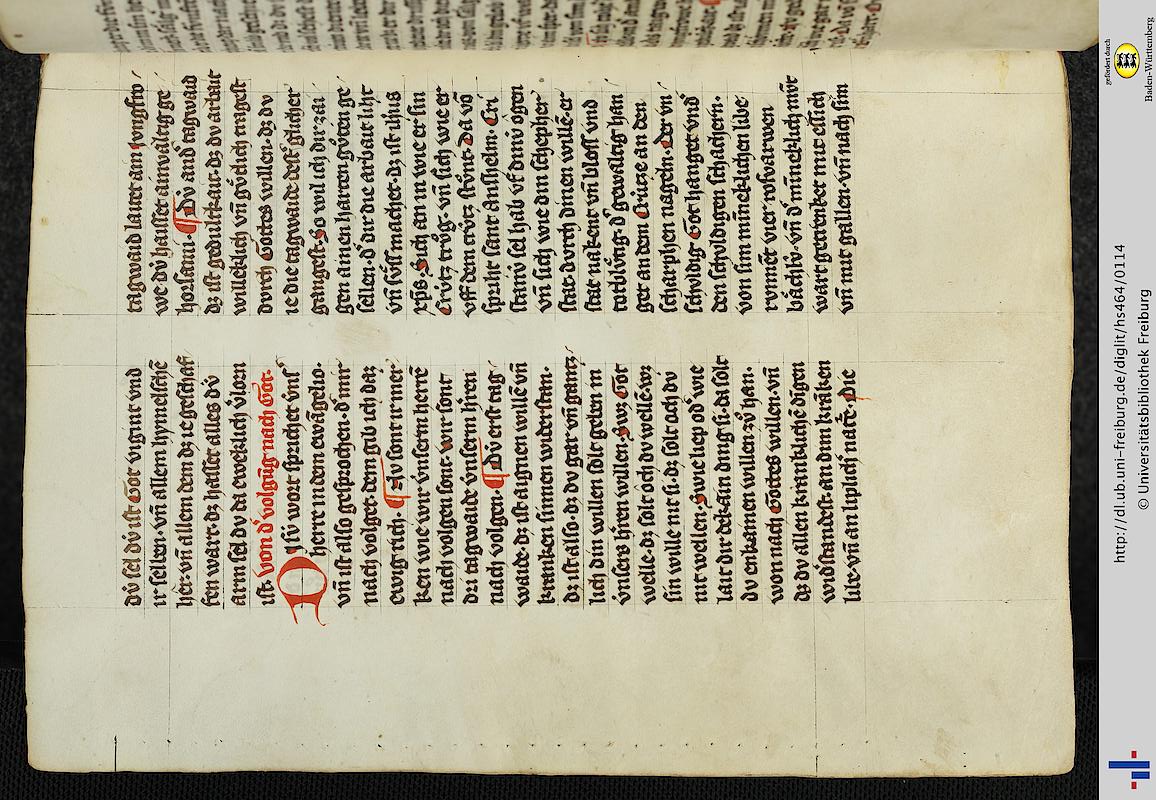 dv́ sel dv́ ist Got vigint vnd
ir sellen. vn̄ allem hymelschē
her. vn̄ allen dem dz ie geschaf
fen wart. dz hasset alles dv́
arm sel dv da eweklich vlorn
ist. von d' volgūg nach Got.
Disiv́ wort sprichet vns'
herre in dem ewāgelio.
vn̄ ist also gesprochen. d' mir
nach volget. dem gib ich daz
ewig rich. ¶ Nv sont ir mer
ken wie wir vnserm herrē
nach volgen sont. wir sont
dri tagwaide vnserm hren
nach volgen. ¶ Dv́ erst tag
waide. dz ist aignen willē vn̄
kranken sinnen widerstan.
dz ist also. dz dv gar vn̄ gantz
lich din willen solt geben in
vnsers hren willen. Swz Got
welle. dz solt och dv wellē. wz
sin wille nit si. dz solt och dv
nit wellen. Swie liep od' wie
lait dir dekain ding si. da solt
dv enkainen willen zv̊ han.
won nach Gottes willen. vn̄
dz dv allen krankliche dīgen
wid'standest. an dim krākē
libe. vn̄ an liplich natē. Die
tagwaid lauret ain ivngfro
we dv́ haisset ainvaltig ge
horsami. ¶ Dv́ and' tagwaid
dz ist gedultkait. dz dv arbait
willeklich vn̄ gv̊tlich tragest
dvrch Gottes willen. dz dv
ie die tagwaide dest' glicher
gangest. So wil ich dir zai
gen ainen harten gv̊ten ge
sellen. d' dir die arbait liht
vn̄ sv̊ss machet. dz ist ihus
xp̄s. Sich an in wie er sin
Crv́tz trv̊g. vn̄ sich wie er
vff dem crv́tz stv̊nt. Da vō
spricht sant Anshelm. Cri
stani sel hab vf dinv́ ogen
vn̄ sich wie din schepher
stat dvrch dinen willē. er
stat nakent vn̄ bloss vnd
totlv̊ng. d' gewaltig han
get an dem Crv́tze an den
scharphen nageln. Der vn
schvldig Got hanget vnd'
den schvldigen schachern.
von sim minneklichen libe
rvnnēt vier rosvarwen
bächiv́. vn̄ d' minneklich mv̄t
wart getrenket mit essich
vn̄ mit gallen. vn̄ nach sim
gefördert durch
Baden-Württemberg
http://dl.ub.uni-freiburg.de/diglit/hs464/0114
© Universitätsbibliothek Freiburg